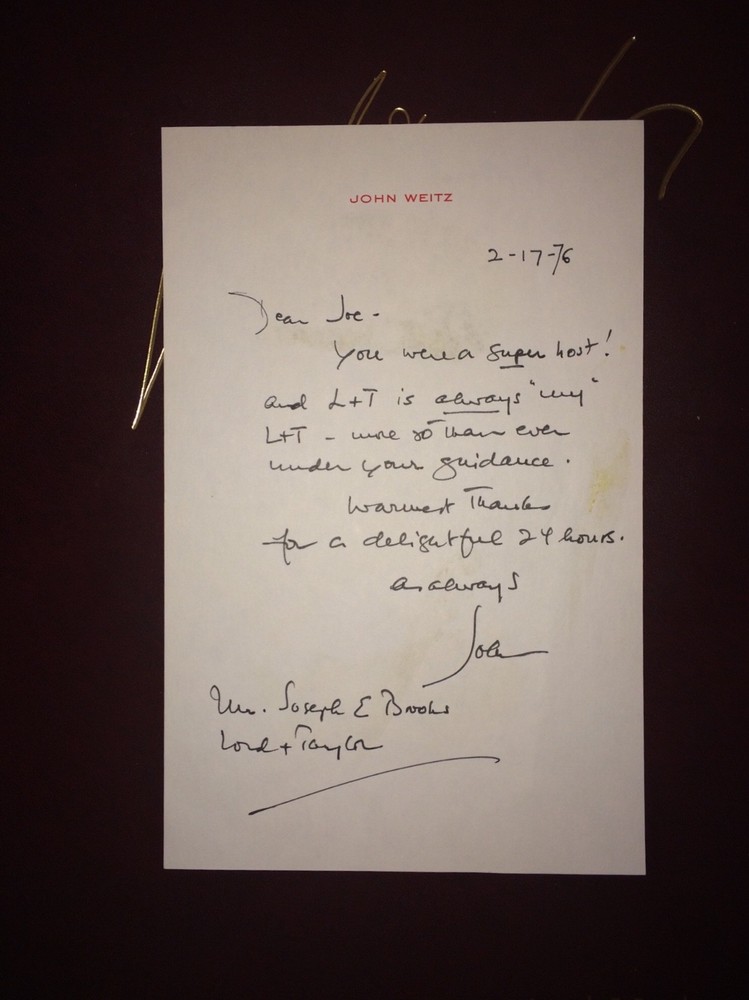 JOHN WEITZ
2-17-76
Dear Joe -
You were a super host!
and L+T is always "my"
L+T - more so than ever
under your guidance.
Warmest Thanks
for a delightful 24 hours.
As always
John
Mr. Joseph E Brooks
Lord + Taylor